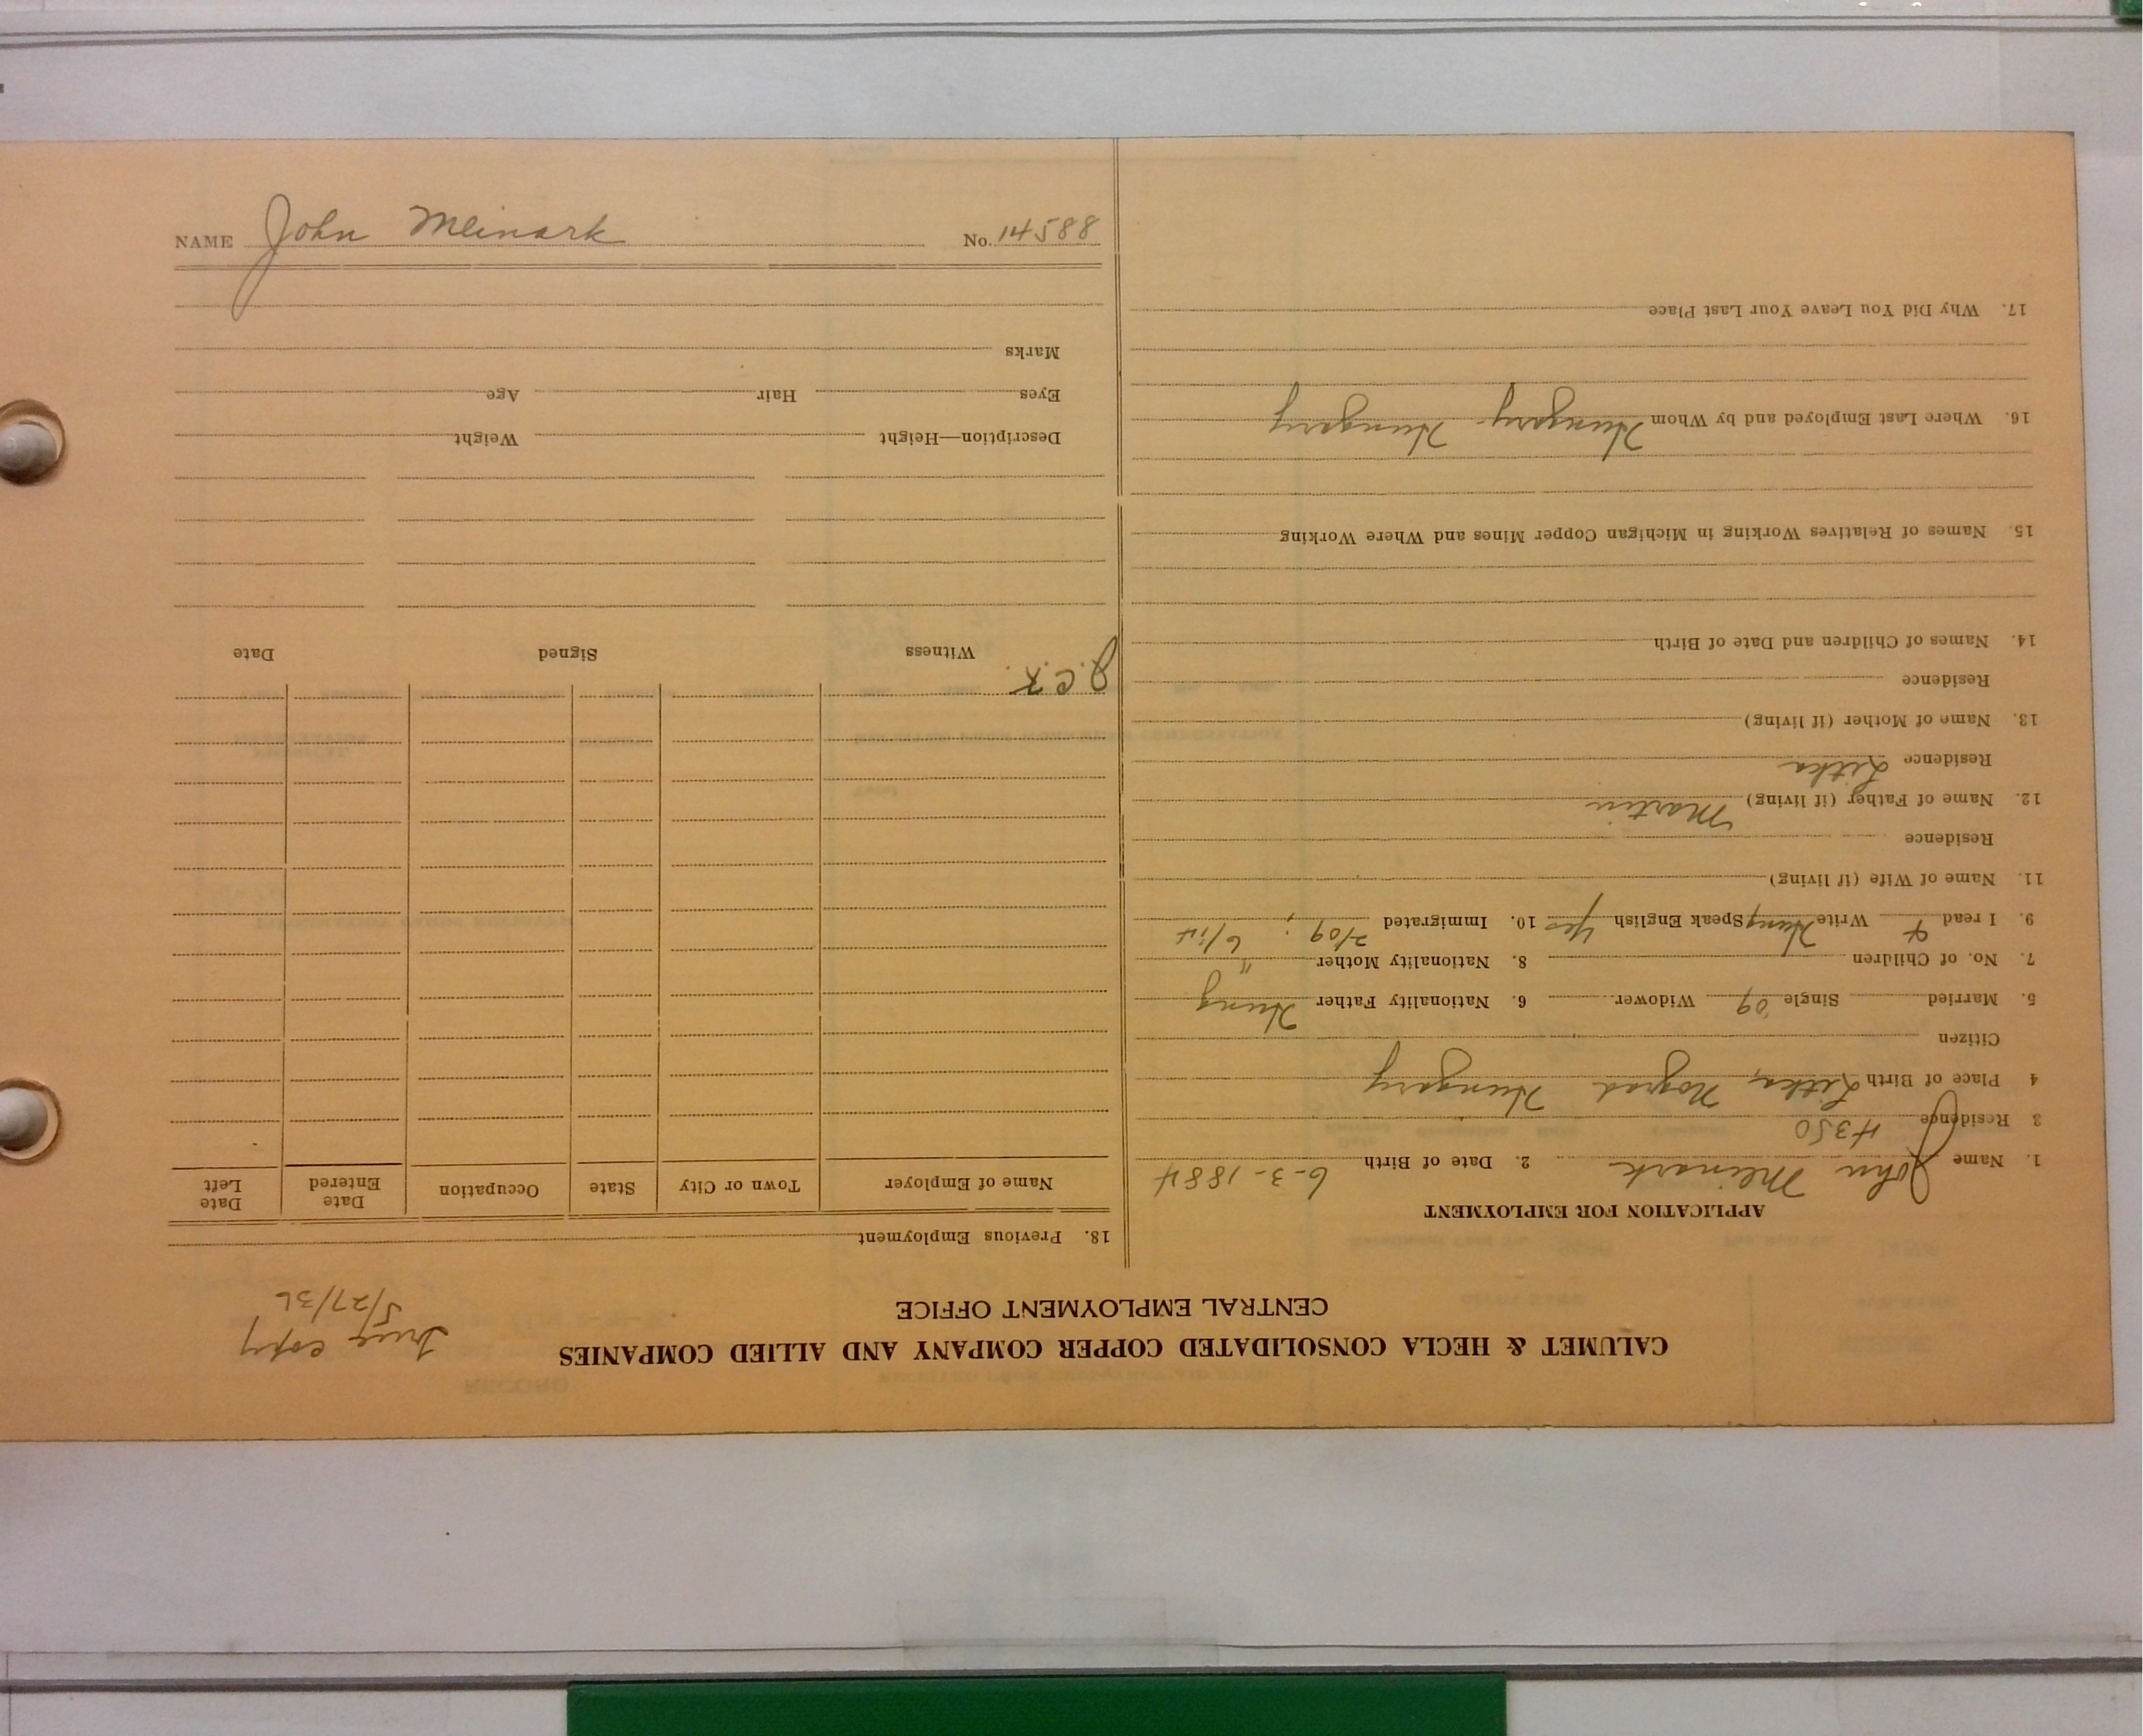 NAME John Mlinark No. 14588
CALUMET & HECLA CONSOLIDATED COPPER COMPANY AND ALLIED COMPANIES
CENTRAL EMPLOYMENT OFFICE
True copy
5/27/36
APPLICATION FOR EMPLOYMENT
1. Name John Mlinark 2. Date of Birth 6-3-1884
3 Residence 4350
4 Place of Birth Litka, Nograd Hungary
Citizen
5. Married Single 09 Widower 6. Nationality Father Hung
7. No. of Children 8. Nationality Mother "
9. I read & Write Hung Speak English Yes 10. Immigrated 2/09; 6/14
11. Name of Wife (if living)
Residence
12. Name of Father (if living) Martin
Residence Litka
13. Name of Mother (if living)
Residence
14. Names of Children and Date of Birth
15. Names of Relatives Working in Michigan Copper Mines and Where Working
16. Where Last Employed and by Whom Hungary Hungary
17. Why Did You Leave Your Last Place
18. Previous Employment
Name of Employer Town or City State Occupation Date Entered Date Left
J.C.K.
Witness Signed Date
Description—Height Weight
Eyes Hair Age
Marks